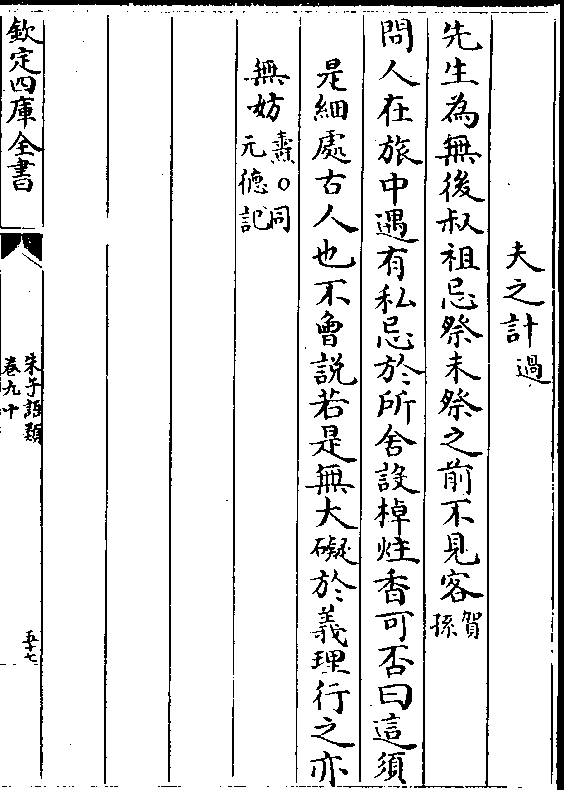 夫之計過
先生為無後叔祖忌祭未祭之前不見客賀孫
問人在旅中遇有私忌於所舍設棹炷香可否曰這須
是細處古人也不曾説若是無大礙於義理行之亦
無妨燾○同元德記
欽定四庫全書
朱子語類
卷九十
五十七